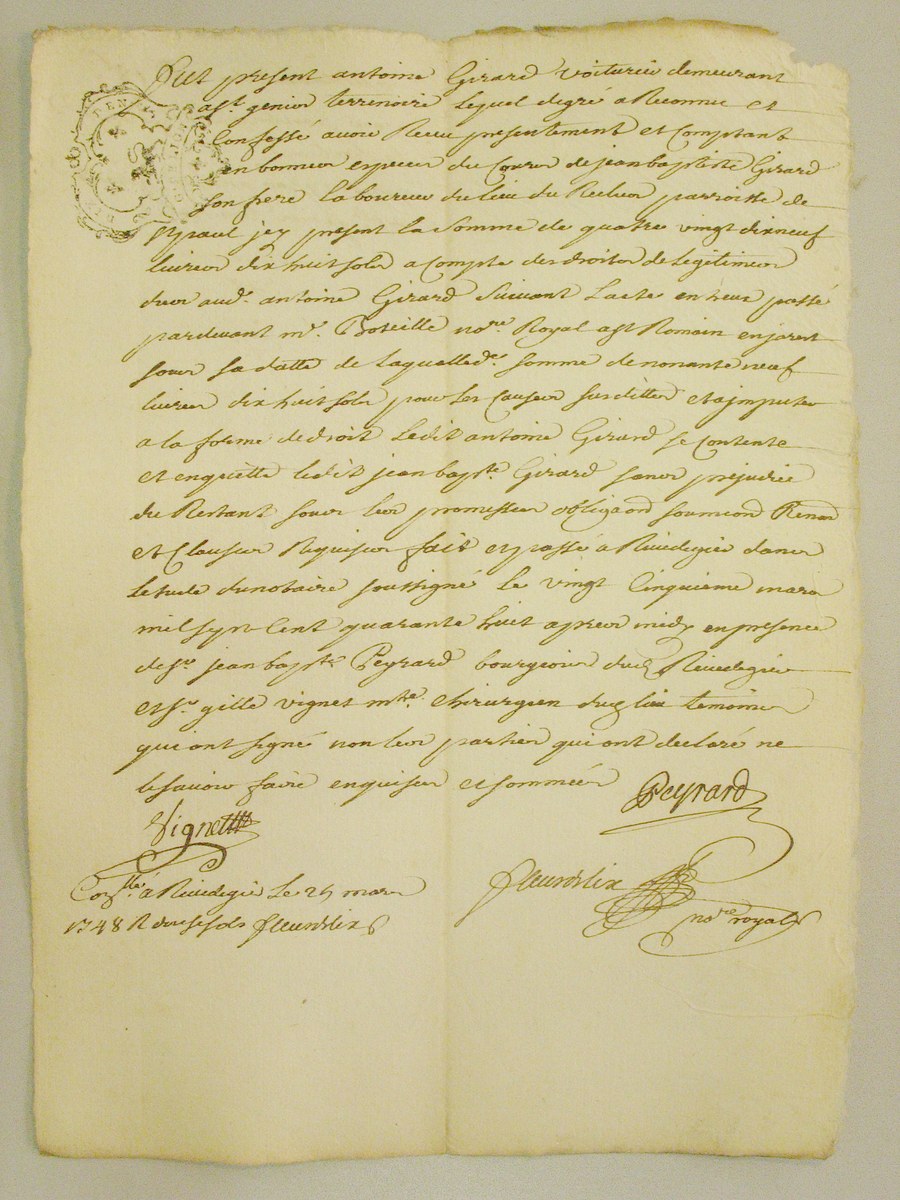 Fut present antoine Girard voiturier demeurant
a st genier terrenoire lequel degré a Reconnu et
Confessé avoir Receu presentement et Comptant
en bonnes especes du Cours de jean baptiste Girard
son frere laboureur du lieu du parroisse de
st paul jey present la somme de quatre vingt dixneuf
livres dix huit sols a compte des droits de legitimes
deus aud. antoine Girard suivant lacte en Receu passé
pardevant me. no.re Royal a st Romain en jarest
sous sa datte de laquelle de. somme de nonante neuf
livres dix huit sols pour les causes susdittes et a imputer
a la forme de droit ledit antoine Girard se contente
et en quitte ledit jean bapte. Girard sans prejudice
du Restant sous les promesses obligaon soumiond Renond
et Clauses Requises fait et passé a Rivedegier dans
letude du notaire soussigné le vingt Cinquieme mars
mil sept Cent quarante huit apres midy en presence
de sr. jean bapte. Peyrard bourgeois dud. Rivedegier
et sr. gille vignet mtre. chirurgien dud lieu temoins
qui ont signé non les parties qui ont declaré ne
le savoir faire enquises et sommées
Peyrard
Vignet
fleurdelix
no.re royal
Con.llé a Rivedegier le 25 mars
1748 R douse sols fleurdelix